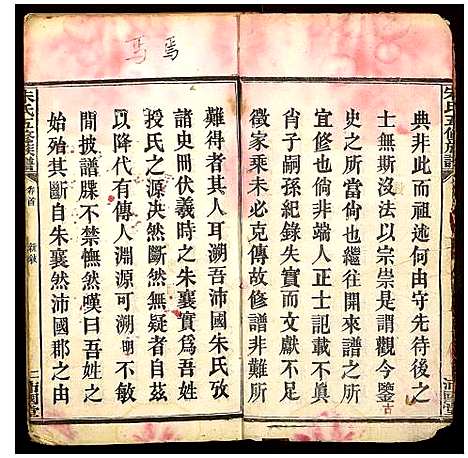 焉 焉
朱氏五修族譜
典非此而祖述何由守先待後之
士無斯沒法以宗崇是謂觀今鑒古
史之所當尙也繼往開來譜之所
宜修也倘非端人正士記載不真
肖子嗣孫紀錄失實而文獻不足
徵家乘未必克傳故修譜非難所
難得者其人耳溯吾沛國朱氏攷
諸史冊伏羲時之朱襄實爲吾姓
授氏之源決然斷然無疑者自茲
以降代有傳人淵源可溯明不敏
間披譜牒不禁憮然嘆曰吾姓之
始殆其斷自朱襄然沛國郡之由
朱氏五修族譜
卷首
沛國堂